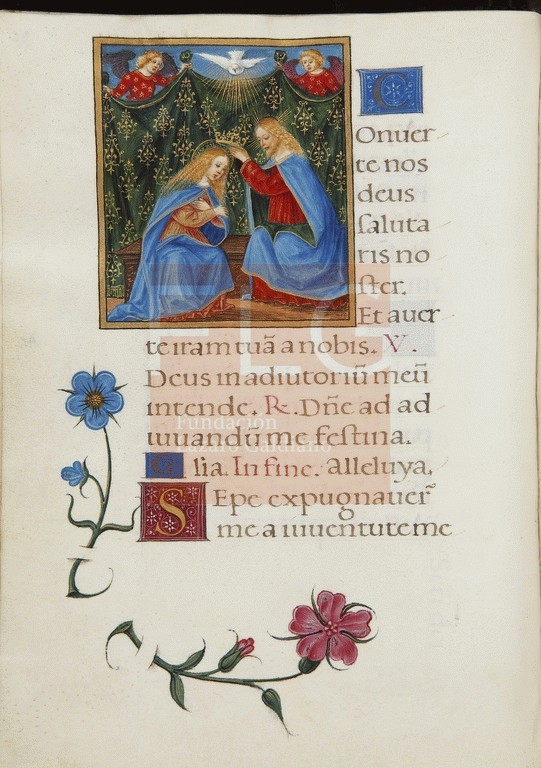 C
Onuer
te nos
deus
saluta
ris no
ster.
Et auer
te iram tuā a nobis. V.
Deus in adiutoriū meū
intende. R. Dñe ad ad
iuuandū me festina.
G lia. In fine. alleluya.
SEpe expugnauer̄
me a iuuentute me
FLG
Fundación
Lázaro Galdiano